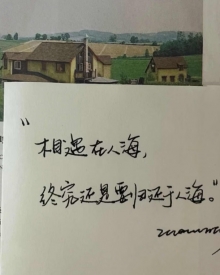 “相遇在人海，
终究还是要归还于人海。”